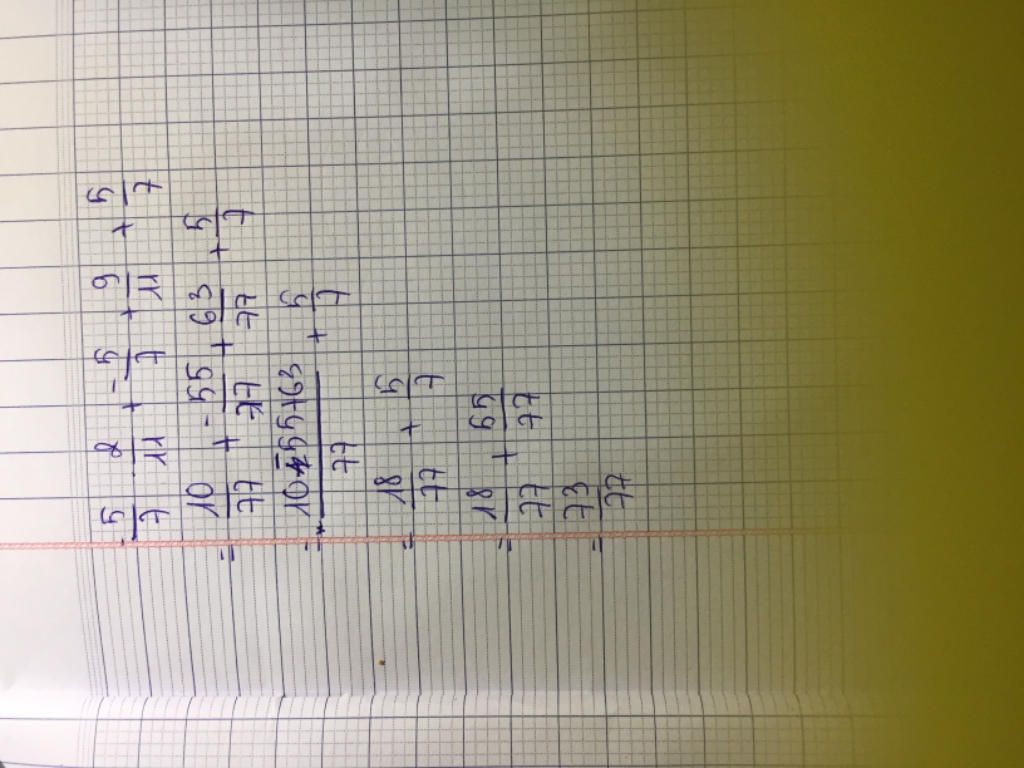 5/7 · 2/11 + -5/7 + 9/11 + 5/7
= 10/77 + -55/77 + 63/77 + 5/7
= 10-55+63/77 + 5/7
= 18/77 + 5/7
= 18/77 + 55/77
= 73/77